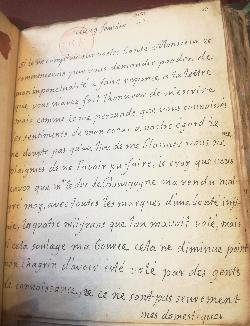 ce 19 fevrier
si je ne comptois sur vostre bonté Monsieur je
commencerois par vous demander pardon de
mon imponctualité a faire reponse a la lettre
que vous m'avez fait l'honneur de m'escrire
mais comme je me persuade que vous connoissez
les sentiments de mon cœur a vostre egard je
ne doute pas qu'au lieu de me blamer vous me
plaignés de ne l'avoir pu faire. je croy que vous
savez que Mr le duc de Champagne m'a rendu
avec toutes les marques d'une
les quatre mil francs que l'on m'avoit volé, mais
si cela soulage ma bource cela ne diminue point
mon chagrin d'avoir esté volé par des gens
de connoissance, car ce ne sont pas seurement
mes domestiques